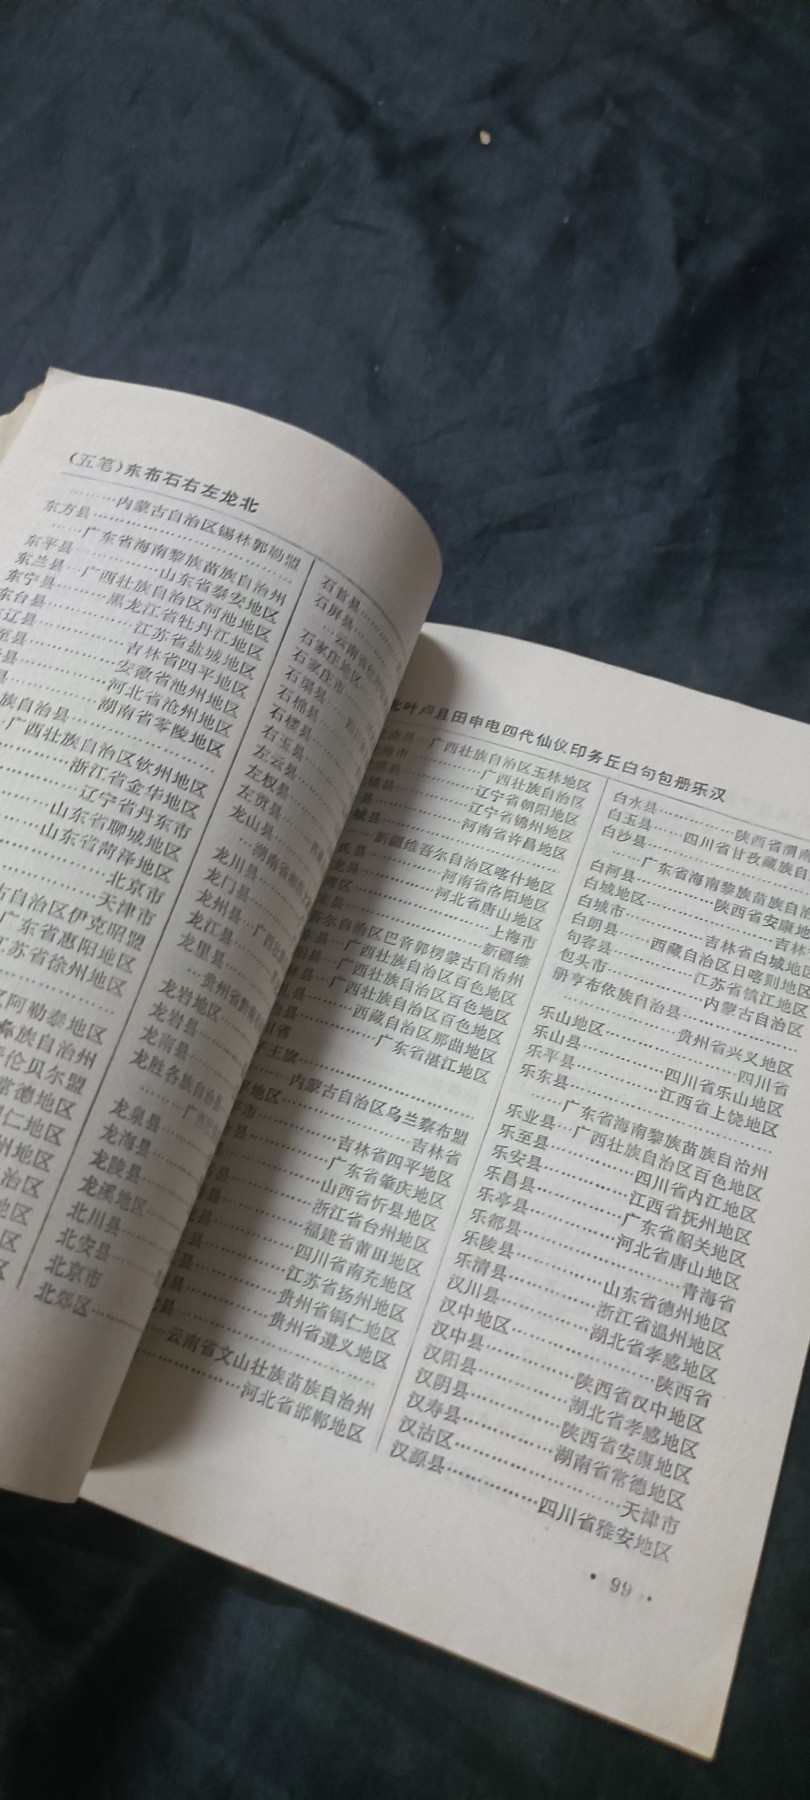 （五笔）东布石右左龙北
……内蒙古自治区锡林郭勒盟
东方县……
……广东省海南黎族苗族自治州
东平县……山东省泰安地区
东兰县…广西壮族自治区河池地区
东宁县……黑龙江省牡丹江地区
东台县……江苏省盐城地区
辽县……吉林省四平地区
至县……安徽省池州地区
县……河北省沧州地区
县……湖南省零陵地区
族自治县……
广西壮族自治区钦州地区
……浙江省金华地区
……辽宁省丹东市
……山东省聊城地区
……山东省菏泽地区
……北京市
……天津市
古自治区伊克昭盟
广东省惠阳地区
江苏省徐州地区
阿勒泰地区
彝族自治州
伦贝尔盟
常德地区
仁地区
州地区
治区
地区
区
区
石首县……
石屏县……
石家庄地区…
石家庄市…
石渠县…
石楼县…
石玉县…
左云县…
左权县…
左贡县…
龙山县…
龙川县…
龙门县…
龙州县…
龙江县…
龙里县…
龙岩地区…
龙岩县…
龙南县…
龙胜各族自治县…
龙泉县…
龙海县…
龙陵县…
龙溪地区…
北川县…
北安县…
北京市
北郊区…
北叶卢且田申电四代仙仪印务丘白句包册乐汉
县…广西壮族自治区玉林地区
海市……广西壮族自治区
县……辽宁省朝阳地区
镇县……辽宁省锦州地区
县……河南省许昌地区
城县……
……新疆维吾尔自治区喀什地区
氏县……河南省洛阳地区
龙县……河北省唐山地区
湾区……上海市
县……新疆维
吾尔自治区巴音郭楞蒙古自治州
县…广西壮族自治区百色地区
阳县…广西壮族自治区百色地区
县…广西壮族自治区百色地区
扎县……西藏自治区那曲地区
县……广东省湛江地区
川省
子王旗……
……内蒙古自治区乌兰察布盟
平地区……吉林省
市……吉林省四平地区
会县……广东省肇庆地区
县……山西省忻县地区
县……浙江省台州地区
县……福建省莆田地区
县……四川省南充地区
县……江苏省扬州地区
县……贵州省铜仁地区
县……贵州省遵义地区
县……
…云南省文山壮族苗族自治州
……河北省邯郸地区
白水县……陕西省渭南
白玉县……四川省甘孜藏族自
白沙县……
……广东省海南黎族苗族自治
白河县……陕西省安康地
白城地区……吉林
白城市……吉林省白城地区
白朗县……西藏自治区日喀则地区
句容县……江苏省镇江地区
包头市……内蒙古自治区
册亨布依族自治县……
……贵州省兴义地区
乐山地区……四川省
乐山县……四川省乐山地区
乐平县……江西省上饶地区
乐东县……
……广东省海南黎族苗族自治州
乐业县…广西壮族自治区百色地区
乐至县……四川省内江地区
乐安县……江西省抚州地区
乐昌县……广东省韶关地区
乐亭县……河北省唐山地区
乐都县……青海省
乐陵县……山东省德州地区
乐清县……浙江省温州地区
汉川县……湖北省孝感地区
汉中地区……陕西省
汉中县……陕西省汉中地区
汉阳县……湖北省孝感地区
汉阴县……陕西省安康地区
汉寿县……湖南省常德地区
汉沽区……天津市
汉源县……四川省雅安地区
• 99 •